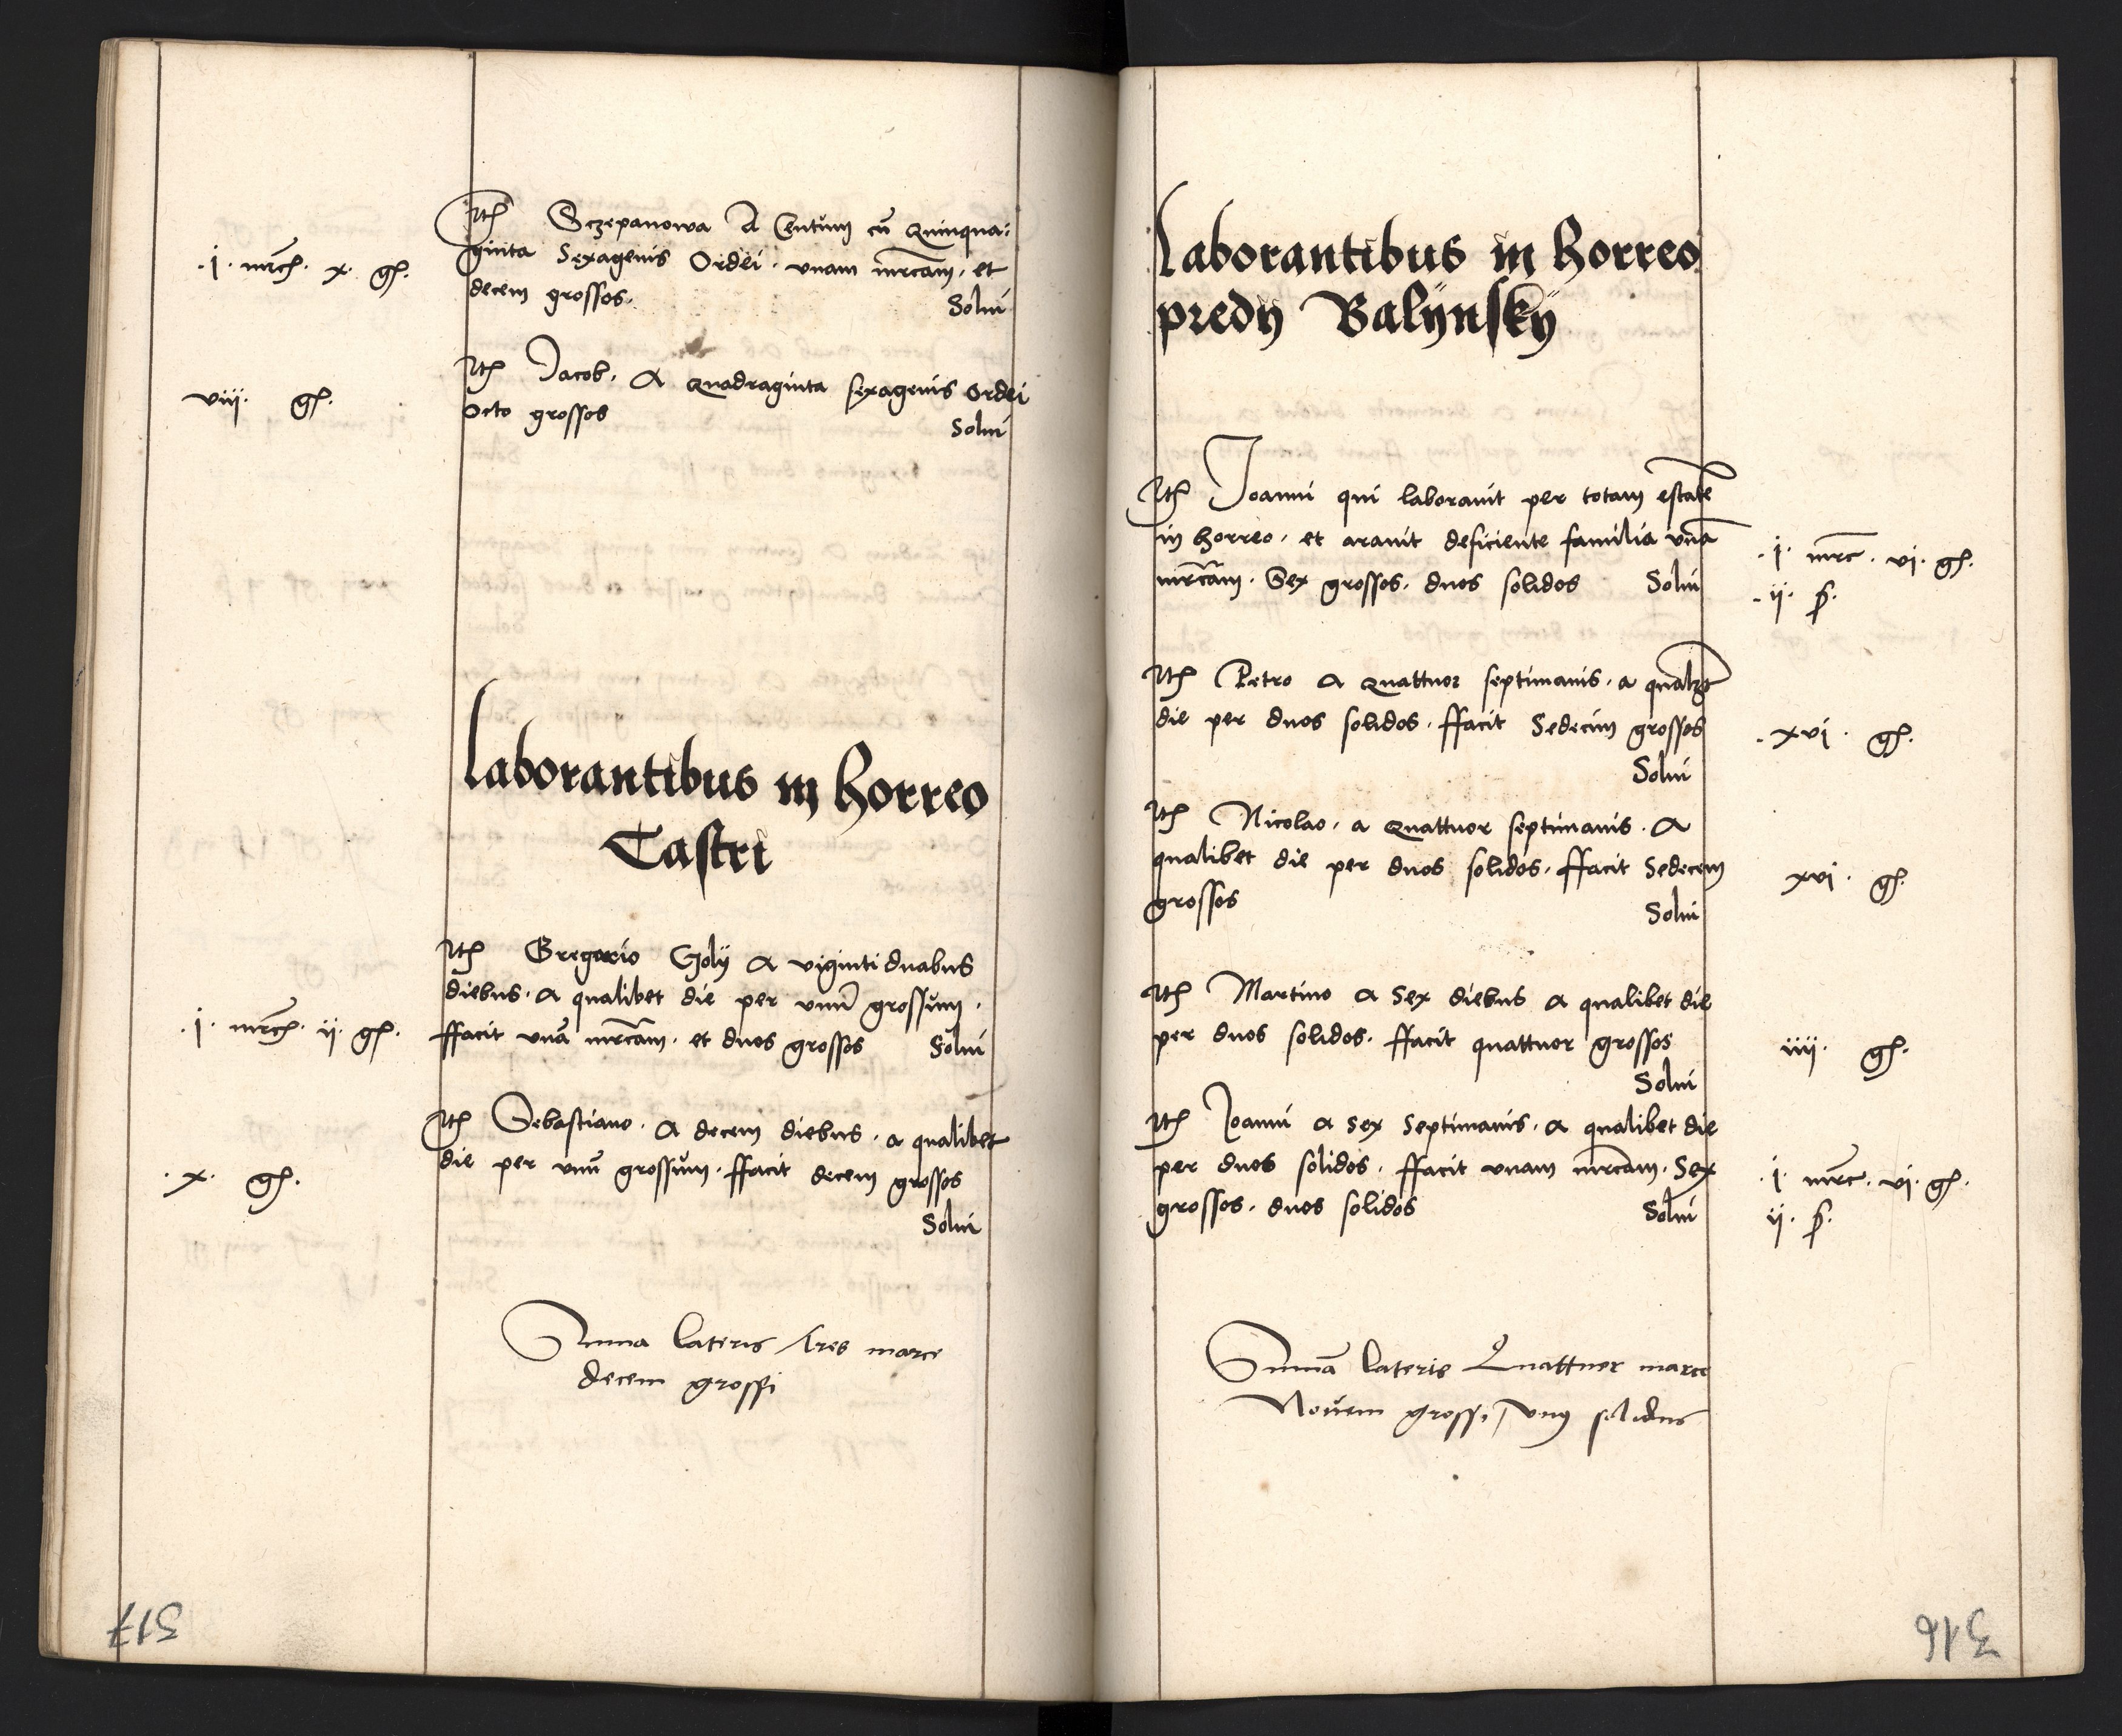 Itē Sczepanowa A Centum cū Quinqua:
ginta Sexagenis Ordei · vnam mrcam · et
decem grossos · Solui
·i· mrc̄ · x · gr ·
Itē Jacob · A Quadraginta sexagenis ordei
octo grossos Solui
viii · gr ·
Laborantibus in horreo
Castri
Itē Gregorio Goly A viginti duabus
diebus · A qualibet die per vnū grossum ·
ffacit vnā mrcam · et duos grossos Solui
·i· mrc̄ · ii · gr ·
Itē Sebastiano · A decem diebus · a qualibet
die per vnū grossum · ffacit decem grossos
Solui
· x · gr ·
Suma lateris tres marce
decem grossi
317
Laborantibus in horreo
predij Balÿnskÿ
Itē Joanni qui laborauit per totam estatē
in horreo · et arauit deficiente familia vnā
mrcam · Sex grossos · duos solidos Solui
· i · mrc · vi · gr ·
· ii · ſ ·
Itē Petro A Quattuor septimanis · a qualꝫt
die per duos solidos · ffacit Sedecim grossos
Solui
· xvi · gr ·
Itē Nicolao · a Quattuor septimanis · A
qualibet die per duos solidos · ffacit Sedecem
grossos Solui
xvi · gr ·
Itē Martino A Sex diebus A qualibet die
per duos solidos · ffacit quattuor grossos
Solui
iiii · gr ·
Itē Joanni A sex Septimanis · A qualibet die
per duos solidos · ffacit vnam mrcam · Sex
grossos · duos solidos Solui
· i · mrc · vi · gr ·
ii · ſ ·
Sumā lateris Quattuor marce
Nouem grossi / vnꝰ solidus
316